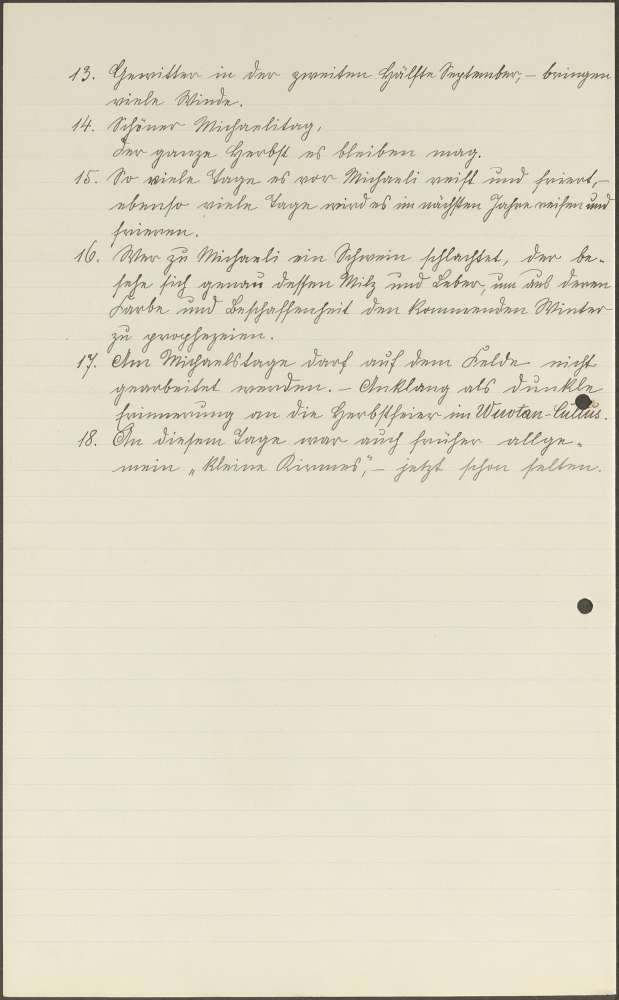 13. Gewitter in der zweiten Hälfte September, – bringen
viele Winde.
14. Schöner Michaelitag,
Der ganze Herbst es bleiben mag.
15. So viele Tage es vor Michaeli reift und friert, –
ebenso viele Tage wird es im nächsten Jahre reifen und
frieren.
16. Wer zu Michaeli ein Schwein schlachtet, der be-
sehe sich genau dessen Milz und Leber, um aus deren
Farbe und Beschaffenheit den kommenden Winter
zu prophezeien.
17. Am Michaelstage darf auf dem Felde nicht
gearbeitet werden. – Anklang als dunkle
Erinnerung an die Herbstfeier im Wuotan-Cultus.
18. An diesem Tage war auch früher allge-
mein „Kleine Kirmes“, – jetzt schon selten.